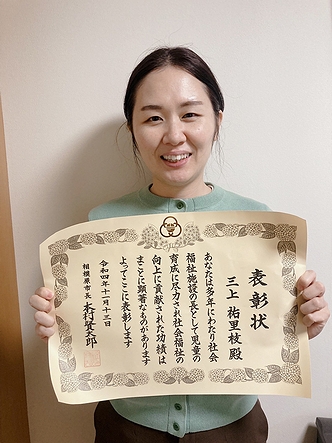 表彰状
三上 祐里枝 殿
あなたは多年にわたり社会
福祉施設の長として児童の
育成に尽力され社会福祉の
向上に貢献された功績は
まことに顕著なものがあります
よってここに表彰します
令和四年十一月十三日
相模原市長 本村賢太郎